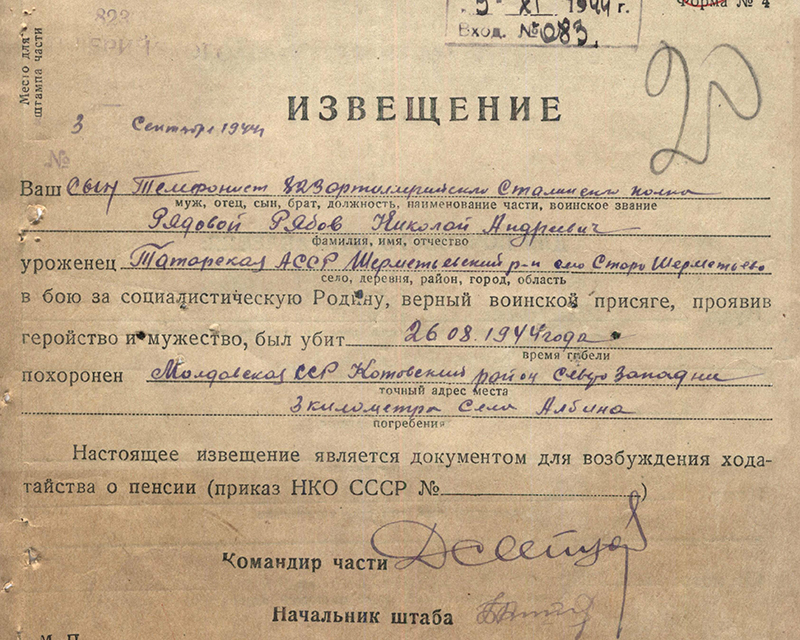 9 XI 1944 г.
Форма № 4
Вход. № 083.
823
Место для
штампа части
20
ИЗВЕЩЕНИЕ
3 Сентября 1944
№
Ваш Сын Телефонист 823 артиллерийского Сталинского полка
муж, отец, сын, брат, должность, наименование части, воинское звание
Рядовой Рябов Николай Андреевич
фамилия, имя, отчество
уроженец Татарская АССР Шереметьевский р-н село Старо Шереметьево
село, деревня, район, город, область
в бою за социалистическую Родину, верный воинской присяге, проявив
геройство и мужество, был убит 26 08. 1944 года
время гибели
похоронен Молдавская ССР Котовский район Северо западнее
точный адрес места
3 километра Села Албина
погребения
Настоящее извещение является документом для возбуждения хода-
тайства о пенсии (приказ НКО СССР № )
Командир части
Начальник штаба
М. П.